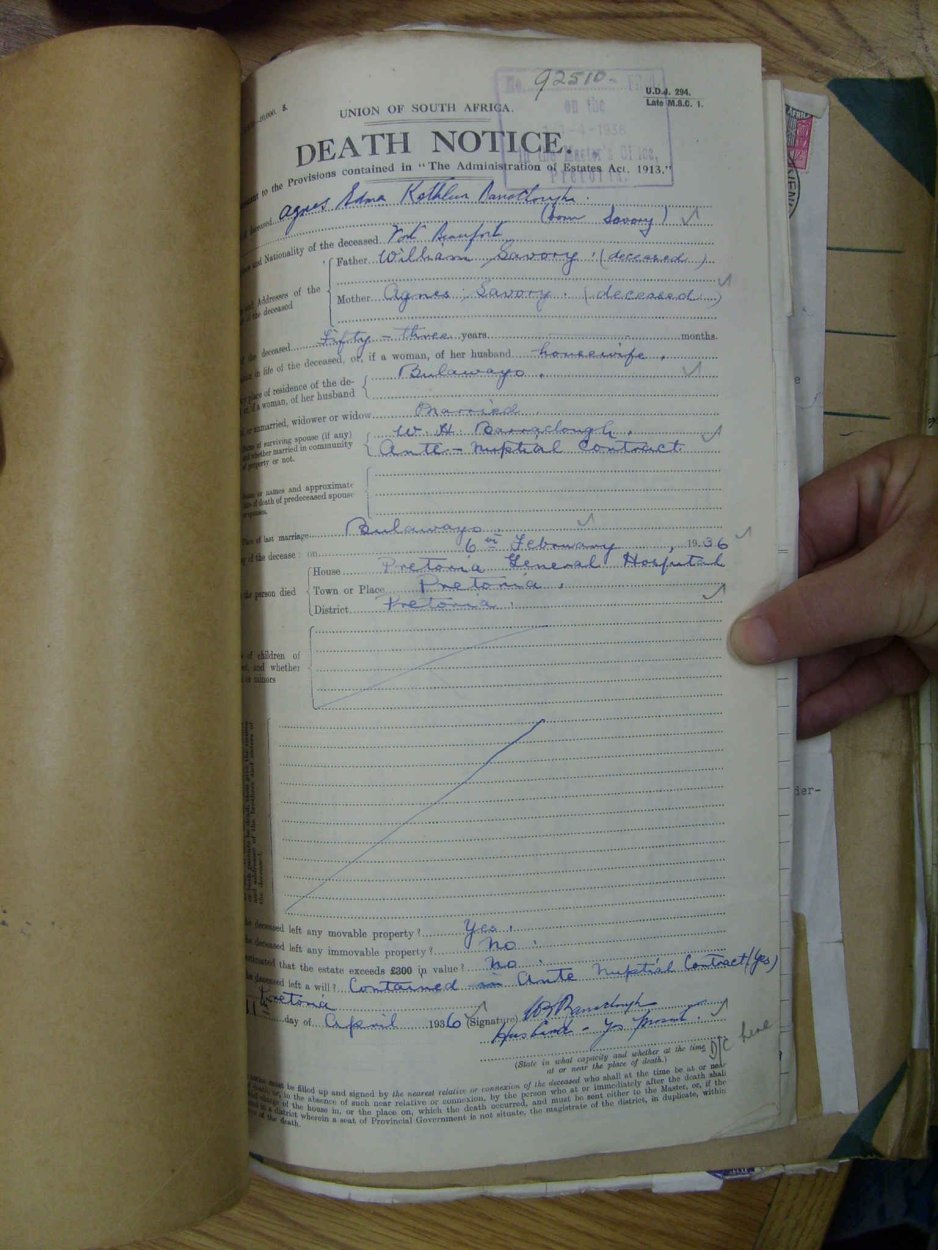 No. 92510
on the
-4-1936
in the Master's Office,
Pretoria.
U.D.J. 294.
Late M.S.C. 1.
20,000. S.
UNION OF SOUTH AFRICA.
DEATH NOTICE.
to the Provisions contained in "The Administration of Estates Act, 1913."
deceased Agnes Edna Kathleen Barraclough.
(born Savory)
and Nationality of the deceased Fort Beaufort
Father William Savory. (deceased)
and Addresses of the
of the deceased
Mother Agnes Savory. (deceased)
the deceased Fifty-three years months.
in life of the deceased, or, if a woman, of her husband housewife.
place of residence of the de-
or, if a woman, of her husband
Bulawayo.
or unmarried, widower or widow Married.
of surviving spouse (if any)
whether married in community
of property or not.
W. H. Barraclough.
Ante-Nuptial Contract.
or names and approximate
of death of predeceased spouse
or spouses.
Place of last marriage Bulawayo.
of the decease: on 6th February, 1936
the person died
House Pretoria General Hospital
Town or Place Pretoria.
District Pretoria.
of children of
and whether
or minors
the deceased.
deceased left any movable property? Yes.
deceased left any immovable property? No.
estimated that the estate exceeds £300 in value? No.
deceased left a will? Contained in Ante Nuptial Contract (Yes)
Pretoria
11th day of April 1936 (Signature) W H Barraclough
Husband - Yes present.
(State in what capacity and whether at the time
at or near the place of death.)
D/C here
must be filled up and signed by the nearest relative or connexion of the deceased who shall at the time be at or near
or, in the absence of such near relative or connexion, by the person who at or immediately after the death shall
charge of the house in, or the place on, which the death occurred, and must be sent either to the Master, or, if the
in a district wherein a seat of Provincial Government is not situate, the magistrate of the district, in duplicate, within
of the death.
der-